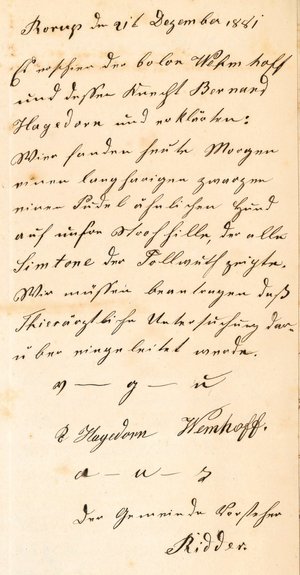 Rorup den 21t Dezember 1881
Es erschien der Colon Wehmhoff
und dessen Knecht Bernard
Hagedorn und erklärten:
Wier fanden heute Morgen
einen langharigen zwarzen
einen Pudel ähnlichen Hund
auf unsre Strohhille, der alle
Simtone der Tollwuth zeigte.
Wir müssen beantragen daß
Thierärztliche Untersuchung dar-
über eingeleitet werde.
v — g — u
B Hagedorn Wemhoff.
a — u — s
Der Gemeinde Vorsteher
Ridder.